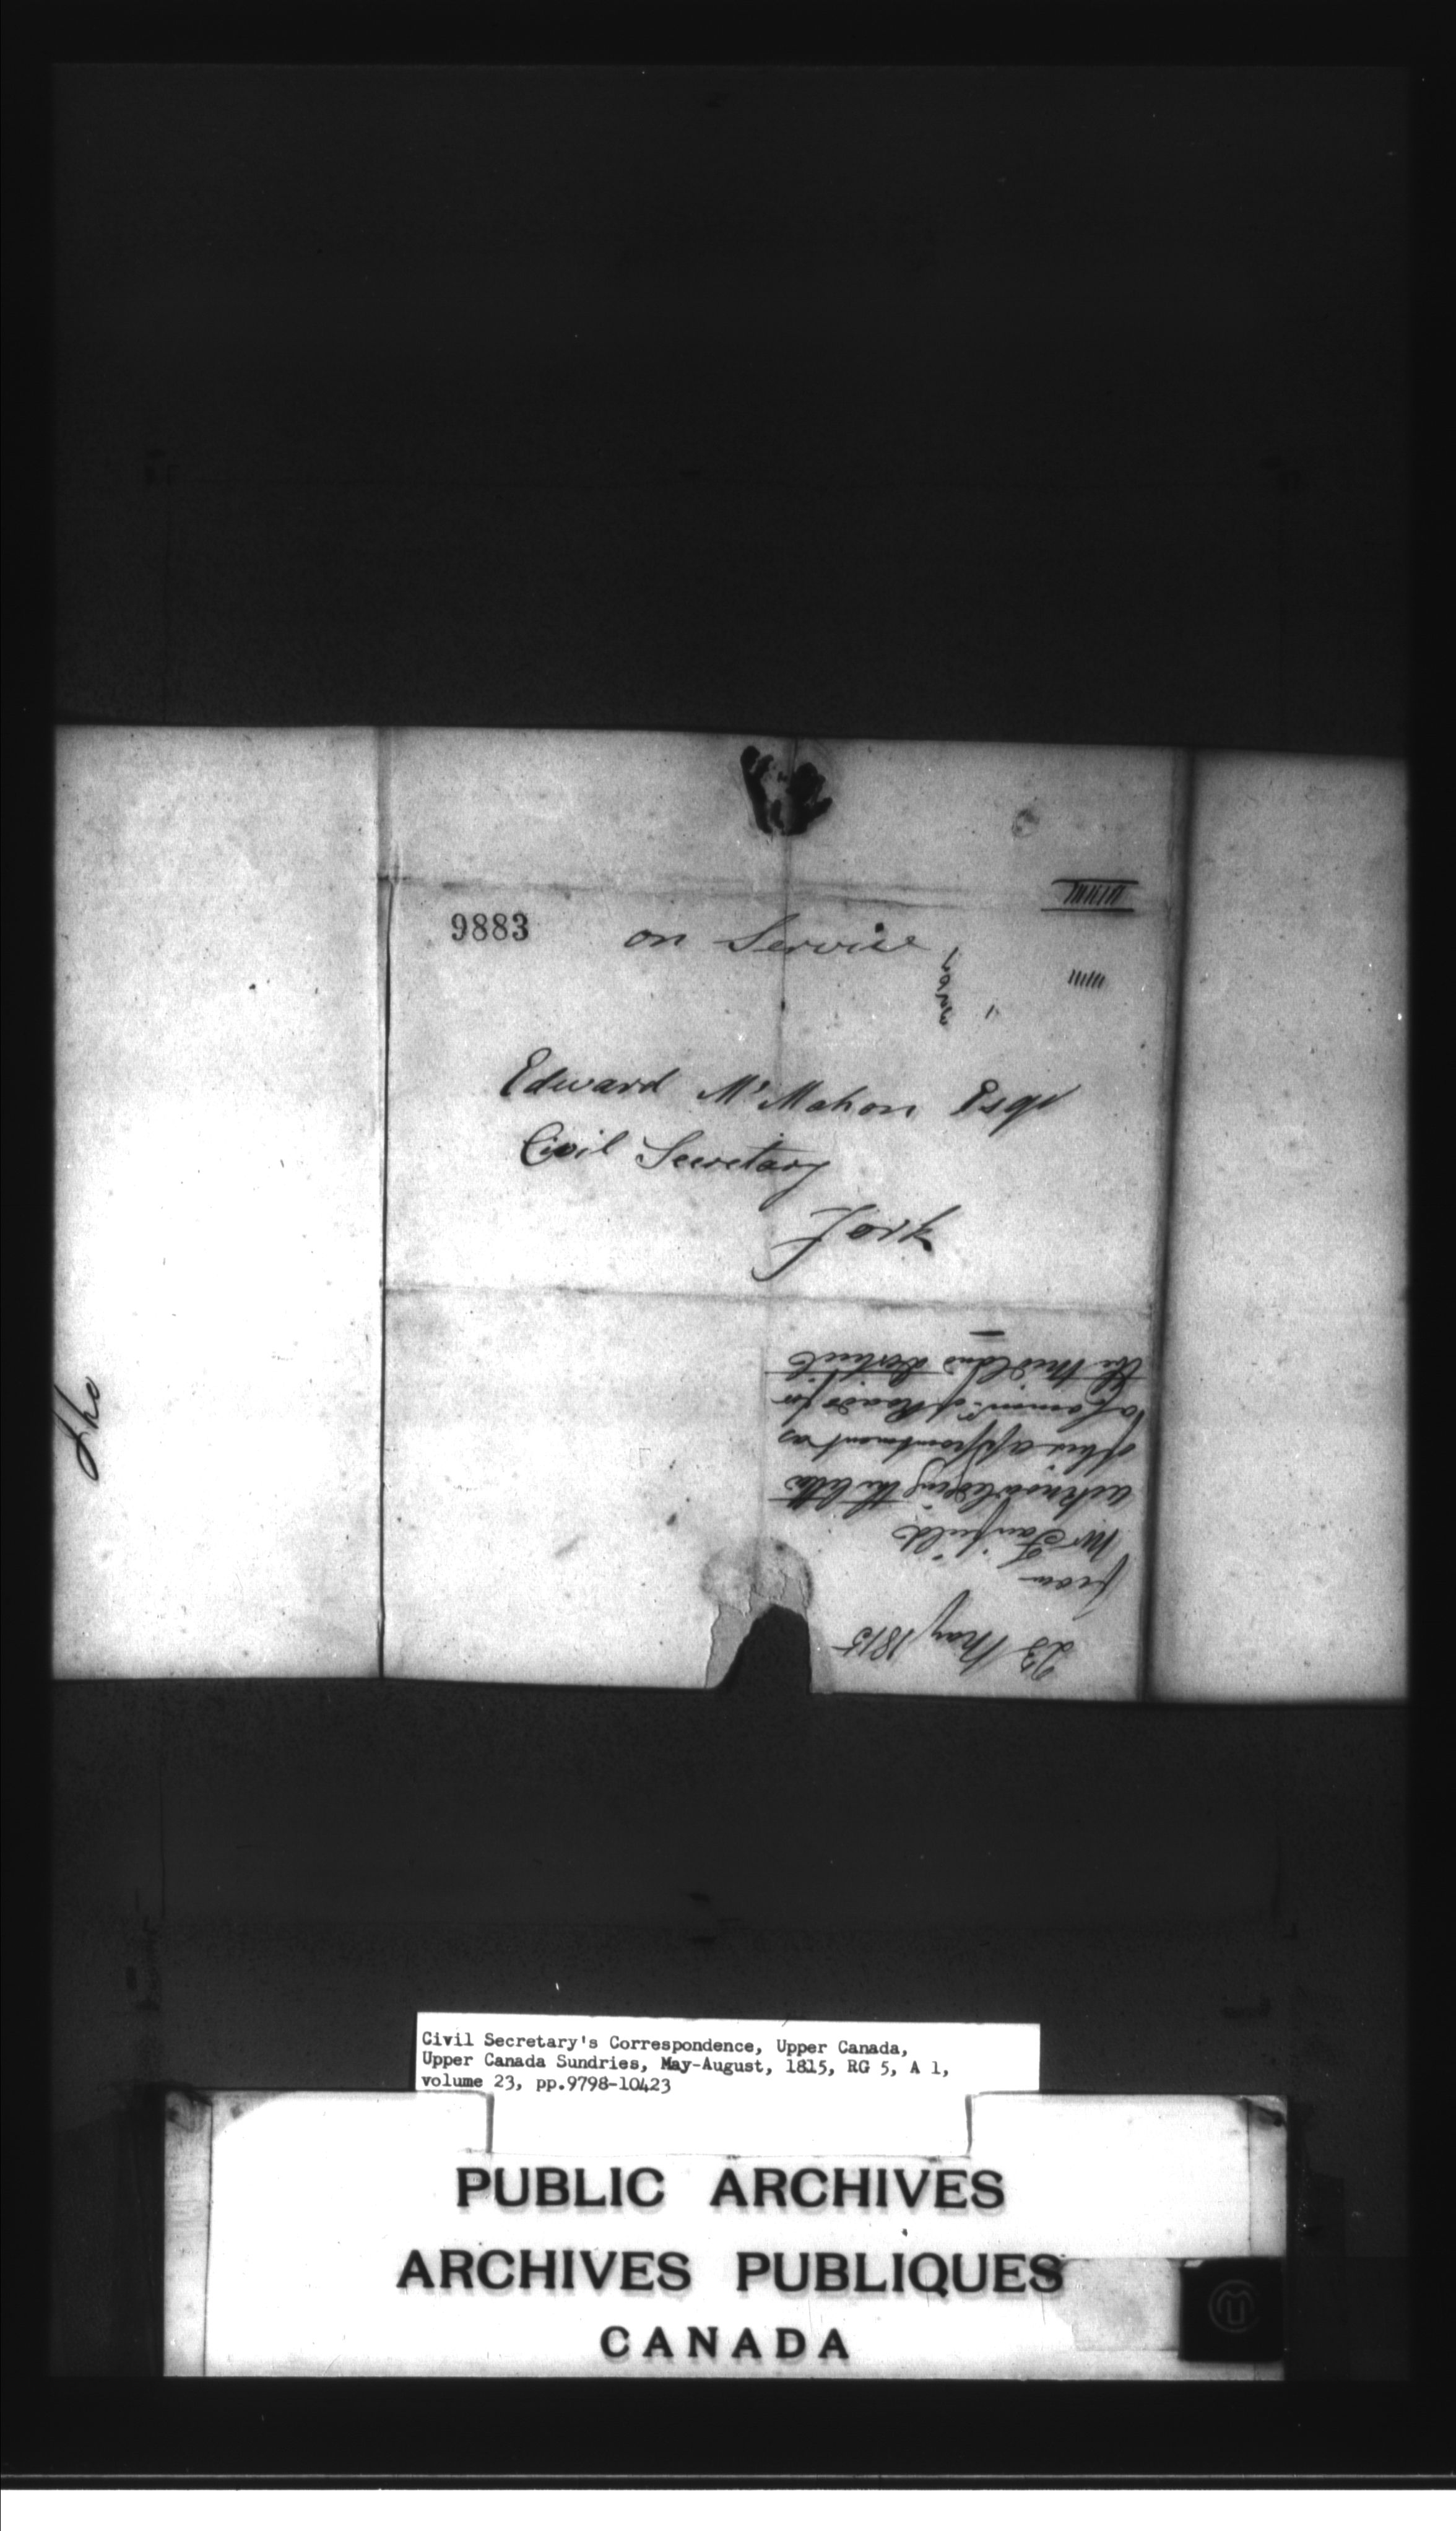 9883
on Service
Edward McMahon Esqr
Civil Secretary
York
23 May 1815
from
Mr Fairfield
acknowledging the letter
of his appointment as
a Commr. of Roads for
the Midland District
The
Civil Secretary's Correspondence, Upper Canada,
Upper Canada Sundries, May-August, 1815, RG 5, A 1,
volume 23, pp.9798-10423
PUBLIC ARCHIVES
ARCHIVES PUBLIQUES
CANADA